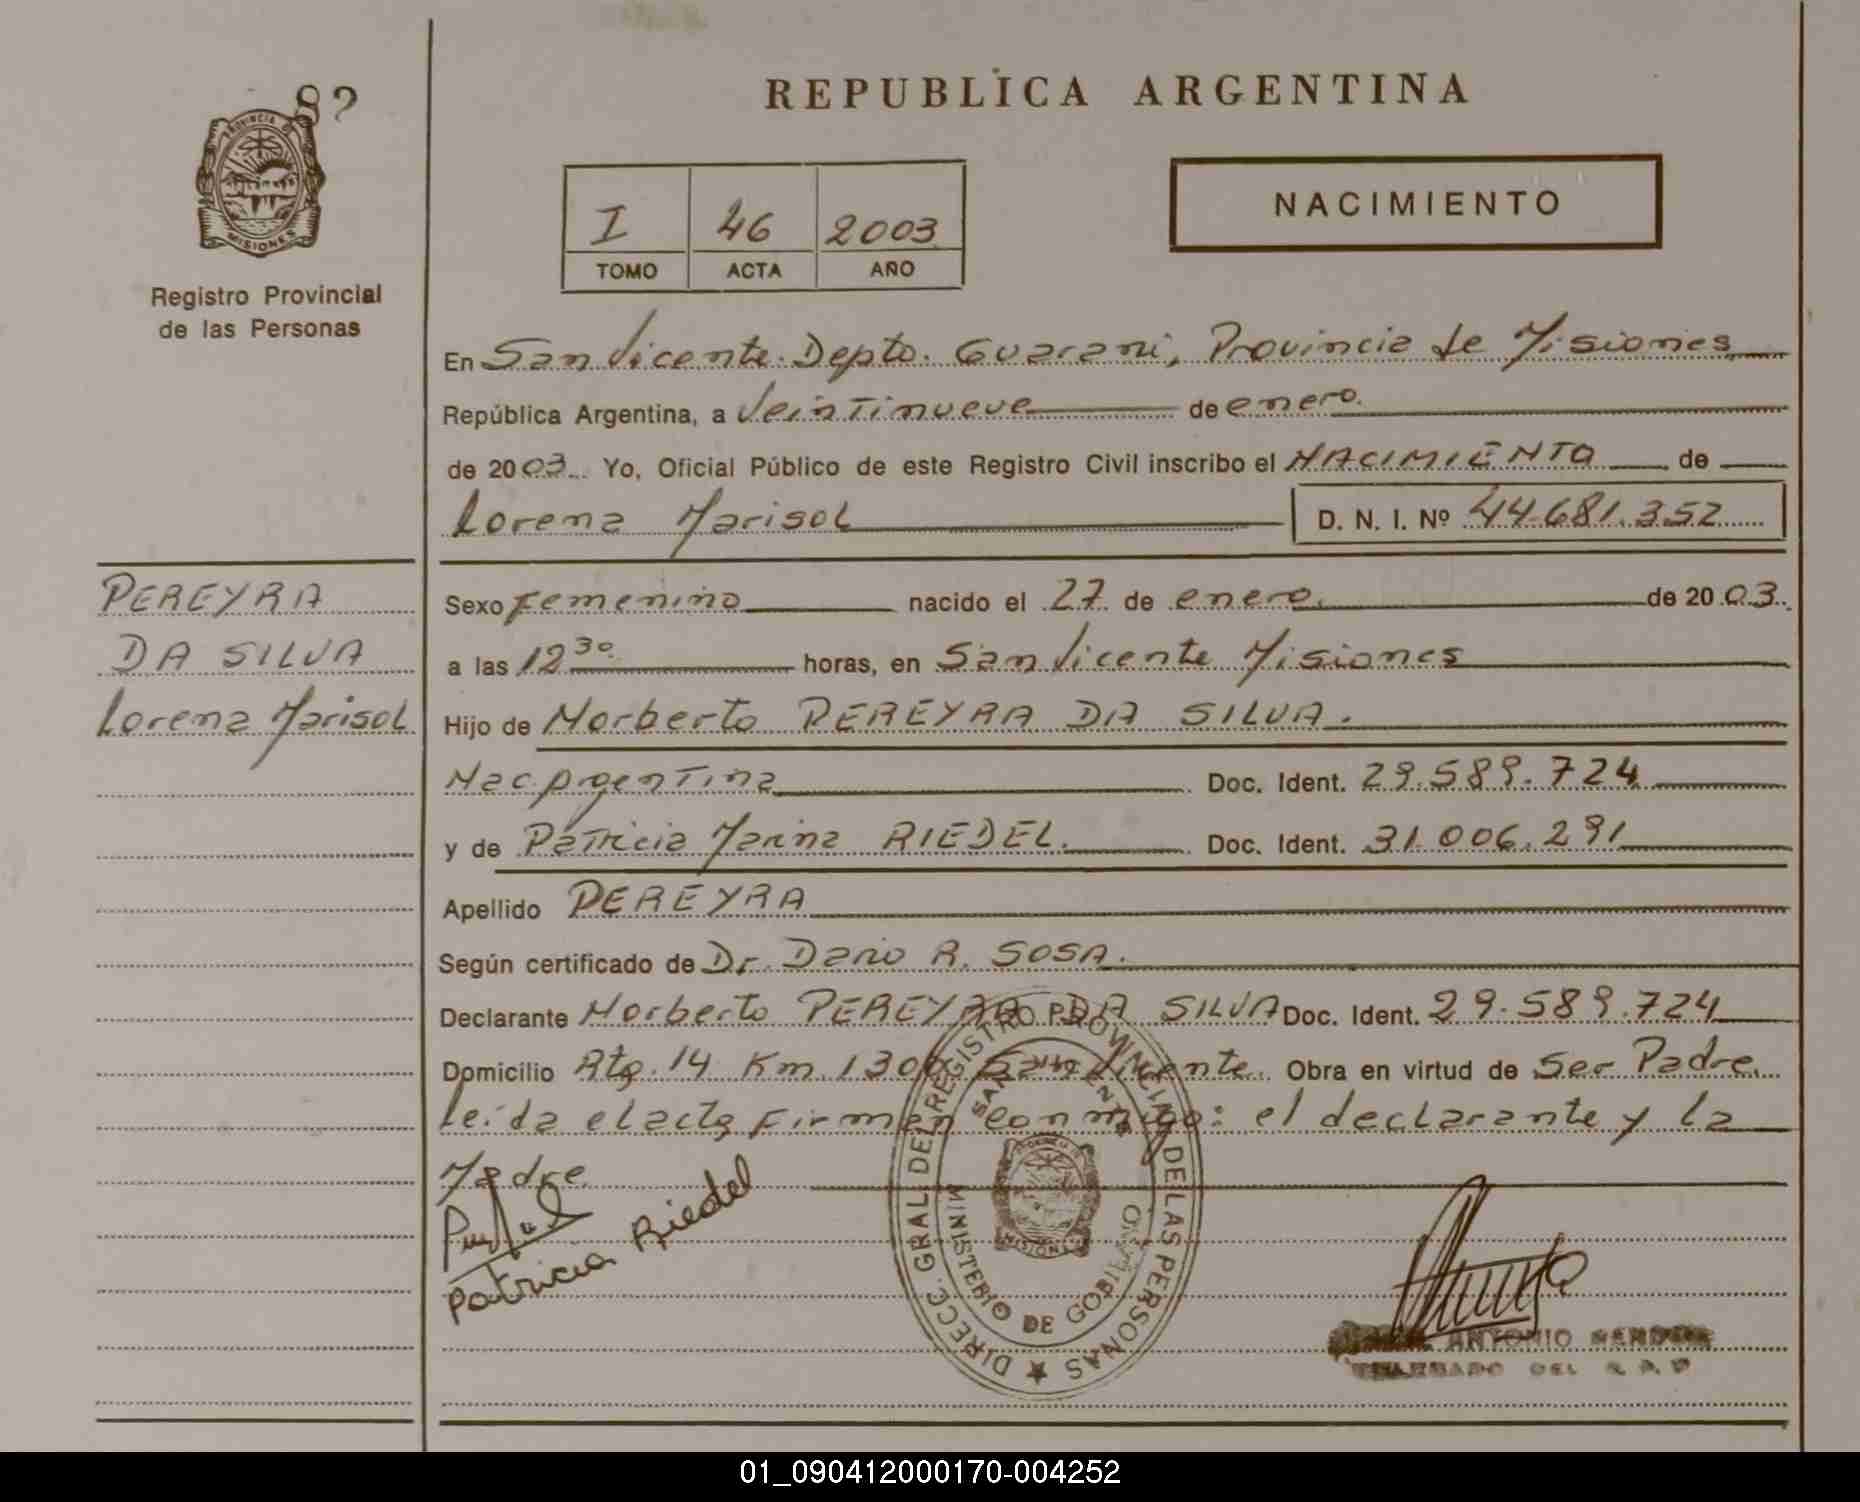 82
REPUBLICA ARGENTINA
PROVINCIA DE
MISIONES
Registro Provincial
de las Personas
I 46 2003
TOMO ACTA AÑO
NACIMIENTO
En San Vicente. Depto. Guarani, Provincia de Misiones
República Argentina, a Veintinueve de enero.
de 2003 Yo, Oficial Público de este Registro Civil inscribo el NACIMIENTO de
Lorena Marisol D. N. I. Nº 44.681.352
PEREYRA
DA SILVA
Lorena Marisol
Sexo Femenino nacido el 27 de enero. de 2003.
a las 12 30 horas, en San Vicente Misiones
Hijo de Norberto PEREYRA DA SILVA.
Nac. Argentina Doc. Ident. 29.589.724
y de Patricia Marina RIEDEL. Doc. Ident. 31.006.291
Apellido PEREYRA
Según certificado de Dr. Dario R. SOSA.
Declarante Norberto PEREYRA DA SILVA Doc. Ident. 29.589.724
Domicilio Rta. 14 Km. 1300 San Vicente. Obra en virtud de Ser Padre.
leida el acta Firman conmigo: el declarante y la
Madre
Patricia Riedel
DIRECC. GRAL. DEL REGISTRO PROVINCIAL DE LAS PERSONAS
SAN VICENTE
MINISTERIO DE GOBIERNO
MISIONES
ANTONIO
DEL R. P. P.
01_090412000170-004252